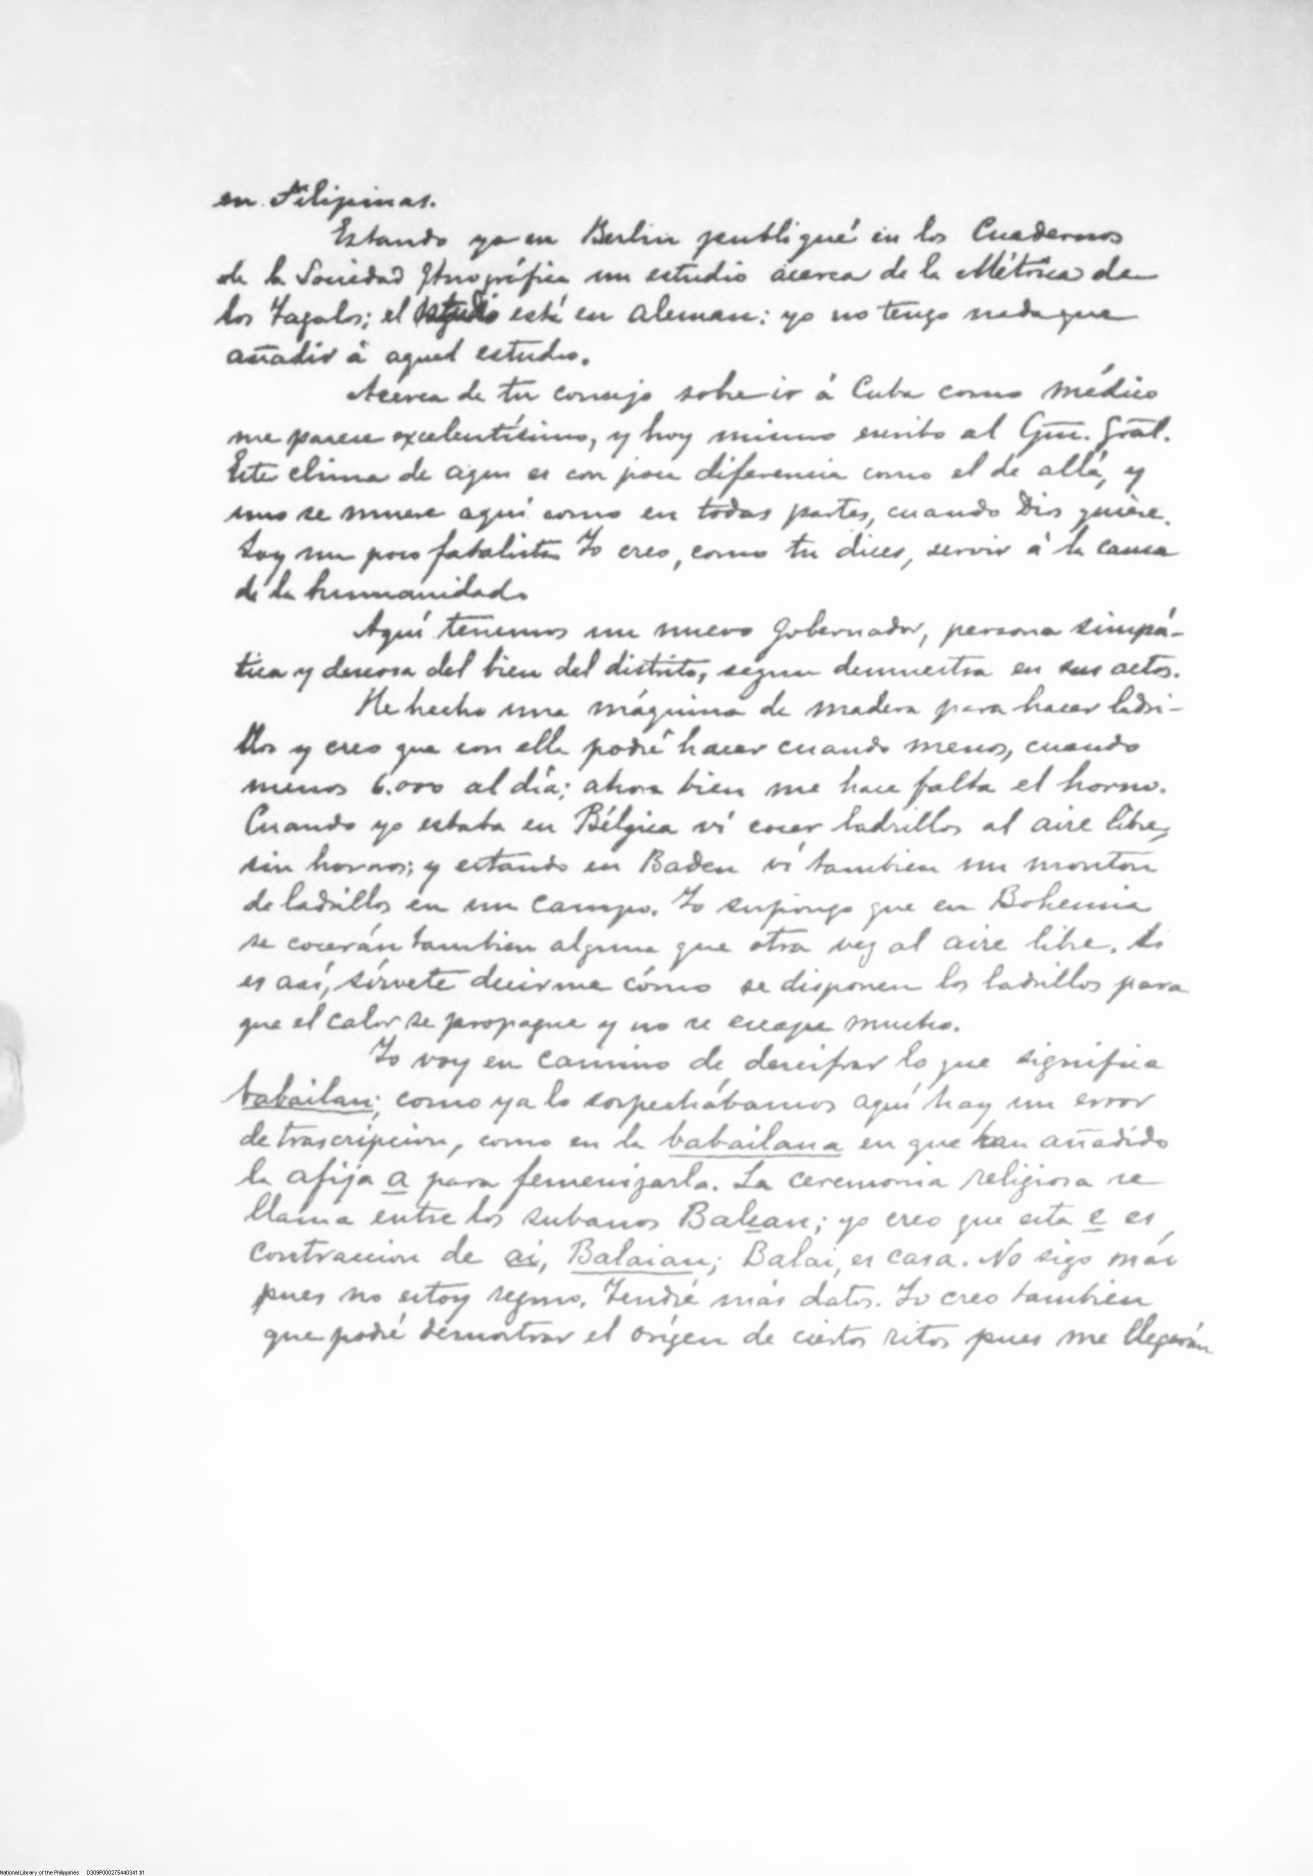 en Filipinas.
Estando yo en Berlin publiqué en los Cuadernos
de la Sociedad Etnográfica un estudio acerca de la Métrica de
los Tagalos; el estudio está en Aleman: yo no tengo nada que
añadir á aquel estudio.
Acerca de tu consejo sobre ir á Cuba como médico
me parece excelentísimo, y hoy mismo escribo al Gral.
Este clima de aqui es con poca diferencia como el de allá, y
uno se muere aquí como en todas partes, cuando Dios quiere.
Soy un poco fatalista Yo creo, como tu dices, servir á la causa
de la humanidad.
Aquí tenemos un nuevo Gobernador, persona simpá-
tica y deseosa del bien del distrito, segun demuestra en sus actos.
He hecho una máquina de madera para hacer ladri-
llos y creo que con ella podré hacer cuando menos, cuando
menos 6.000 al día; ahora bien me hace falta el horno.
Cuando yo estaba en Bélgica ví cocer ladrillos al aire libre,
sin hornos; y estando en Baden ví tambien un monton
de ladrillos en un campo. Yo supongo que en Bohemia
se cocerán tambien alguna que otra vez al aire libre. Si
es así, sírvete decirme cómo se disponen los ladrillos para
que el calor se propague y no se escape mucho.
Yo voy en camino de descifrar lo que significa
babailan; como ya lo sospechábamos aquí hay un error
de trascripcion, como en la babailana en que han añadido
la afija a para femenizarla. La ceremonia religiosa se
llama entre los subanos Balean; yo creo que esta e es
contraccion de ai, Balaian; Balai, es casa. No sigo más
pues no estoy seguro. Tendré más datos. Yo creo tambien
que podré demostrar el orígen de ciertos ritos pues me llegarán
National Library of the Philippines D309P00027544034131